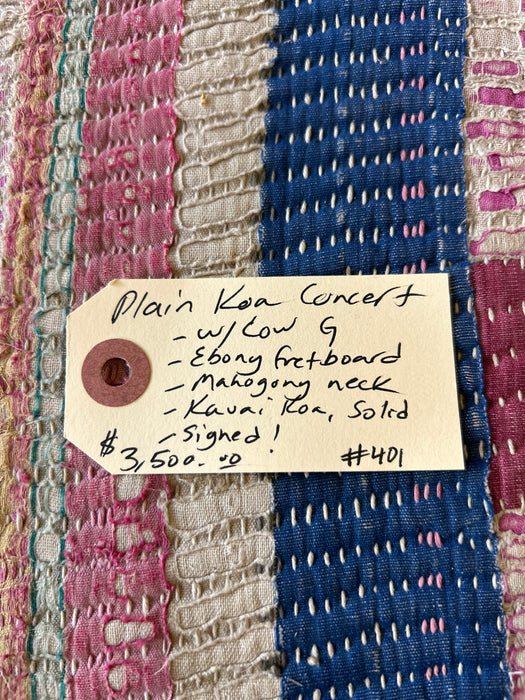 Plain Koa Concert
- w/Low G
- Ebony fretboard
- Mahogony neck
- Kauai Koa, Solid
- Signed!
$3,500.00 #401